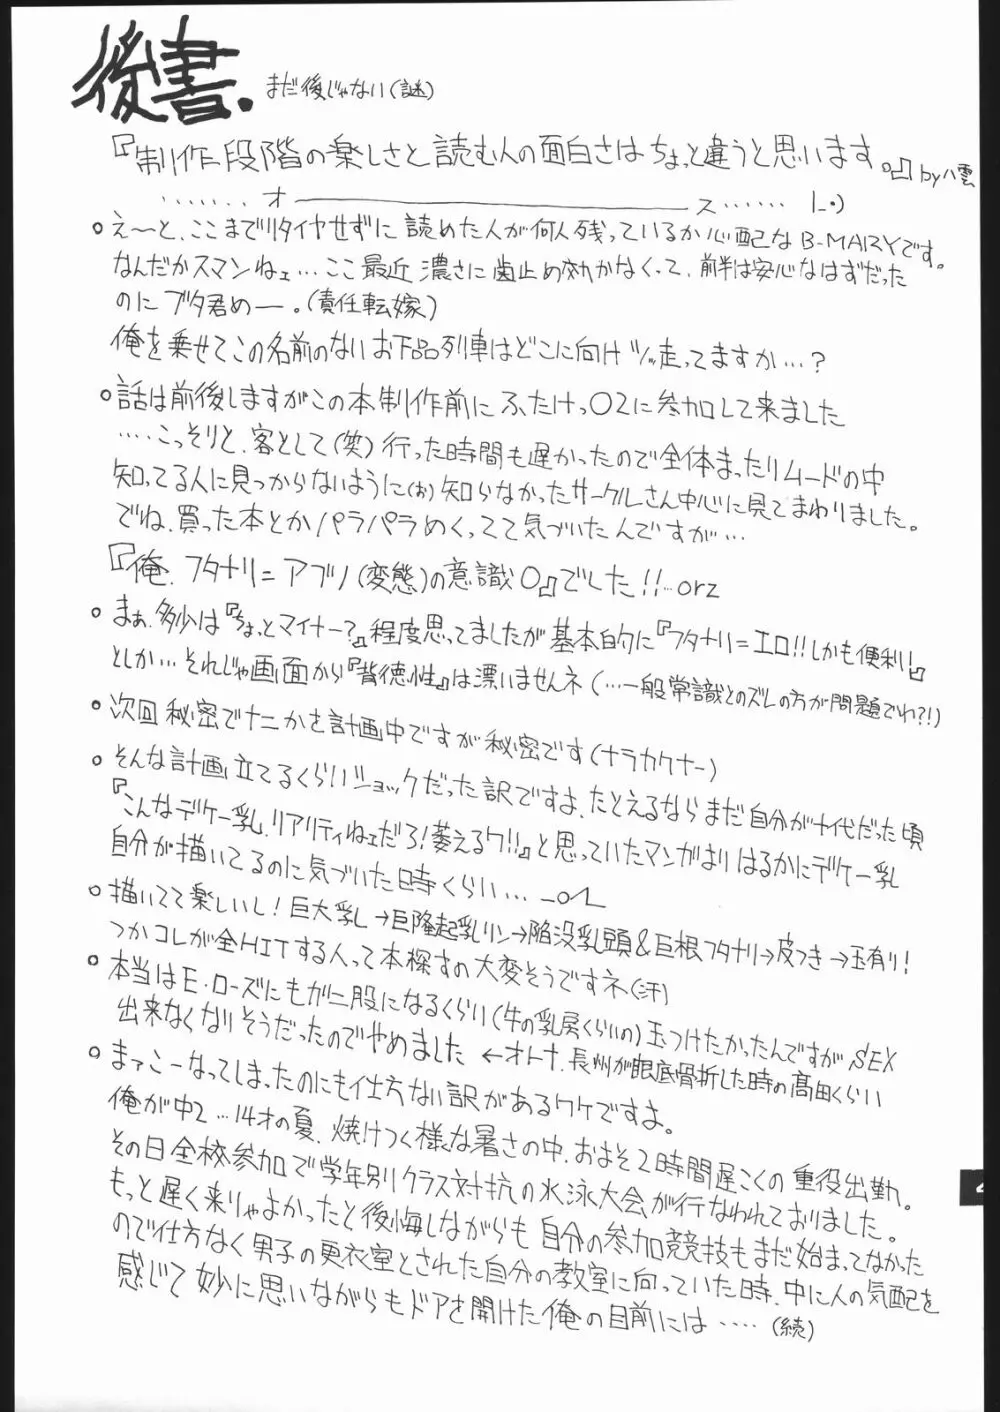 後書。
まだ後じゃない(謎)
『制作段階の楽しさと読む人の面白さはちょっと違うと思います。』by八雲
・・・・・・・オ――――――ス・・・・・・
。え〜と、ここまでリタイヤせずに読めた人が何人残っているか心配なB-MARYです。
なんだかスマンねェ…ここ最近濃さに歯止め効かなくって、前半は安心なはずだった
のにブタ君めー。(責任転嫁)
俺を乗せてこの名前のないお下品列車はどこに向けて突っ走ってますか…?
。話は前後しますがこの本制作前にふたけっ02に参加して来ました
‥‥こっそりと、客として(笑)行った時間も遅かったので全体まったりムードの中
知ってる人に見つからないように(お)知らなかったサークルさん中心に見てまわりました。
でね、買った本とかパラパラめくってて気づいたんですが…
『俺、フタナリ=アブノ(変態)の意識0』でした!!…orz
。まぁ、多少は『ちょっとマイナー?』程度思ってましたが基本的に『フタナリ=エロ!!しかも便利!』
としか…それじゃ画面から『背徳性』は漂いませんネ(…一般常識とのズレの方が問題でわ?!)
。次回秘密でナニかを計画中ですが秘密です(ナラカクナー)
。そんな計画立てるくらいショックだった訳ですよ、たとえるならまだ自分が十代だった頃
『こんなデケー乳、リアリティねェだろ!萎えるワ!!』と思っていたマンガよりはるかにデケー乳
自分が描いてるのに気づいた時くらい…
。描いてて楽しいし!巨大乳→巨隆起乳リン→陥没乳頭&巨根フタナリ→皮つき→玉有り!
つかコレが全HITする人って本探すの大変そうですネ(汗)
。本当はE・ローズにもが二股になるくらい(牛の乳房くらいの)玉つけたかったんですがSEX
出来なくなりそうだったのでやめました ←オトナ。長州が眼底骨折した時の高田くらい
。まっこーなってしまったのにも仕方ない訳があるワケですよ。
俺が中2…14才の夏、焼けつく様な暑さの中、およそ2時間遅こくの重役出勤。
その日全校参加で学年別クラス対抗の水泳大会が行なわれておりました。
もっと遅く来りゃよかったと後悔しながらも自分の参加競技もまだ始まってなかった
ので仕方なく男子の更衣室とされた自分の教室に向っていた時、中に人の気配を
感じて妙に思いながらもドアを開けた俺の目前には‥‥(続)